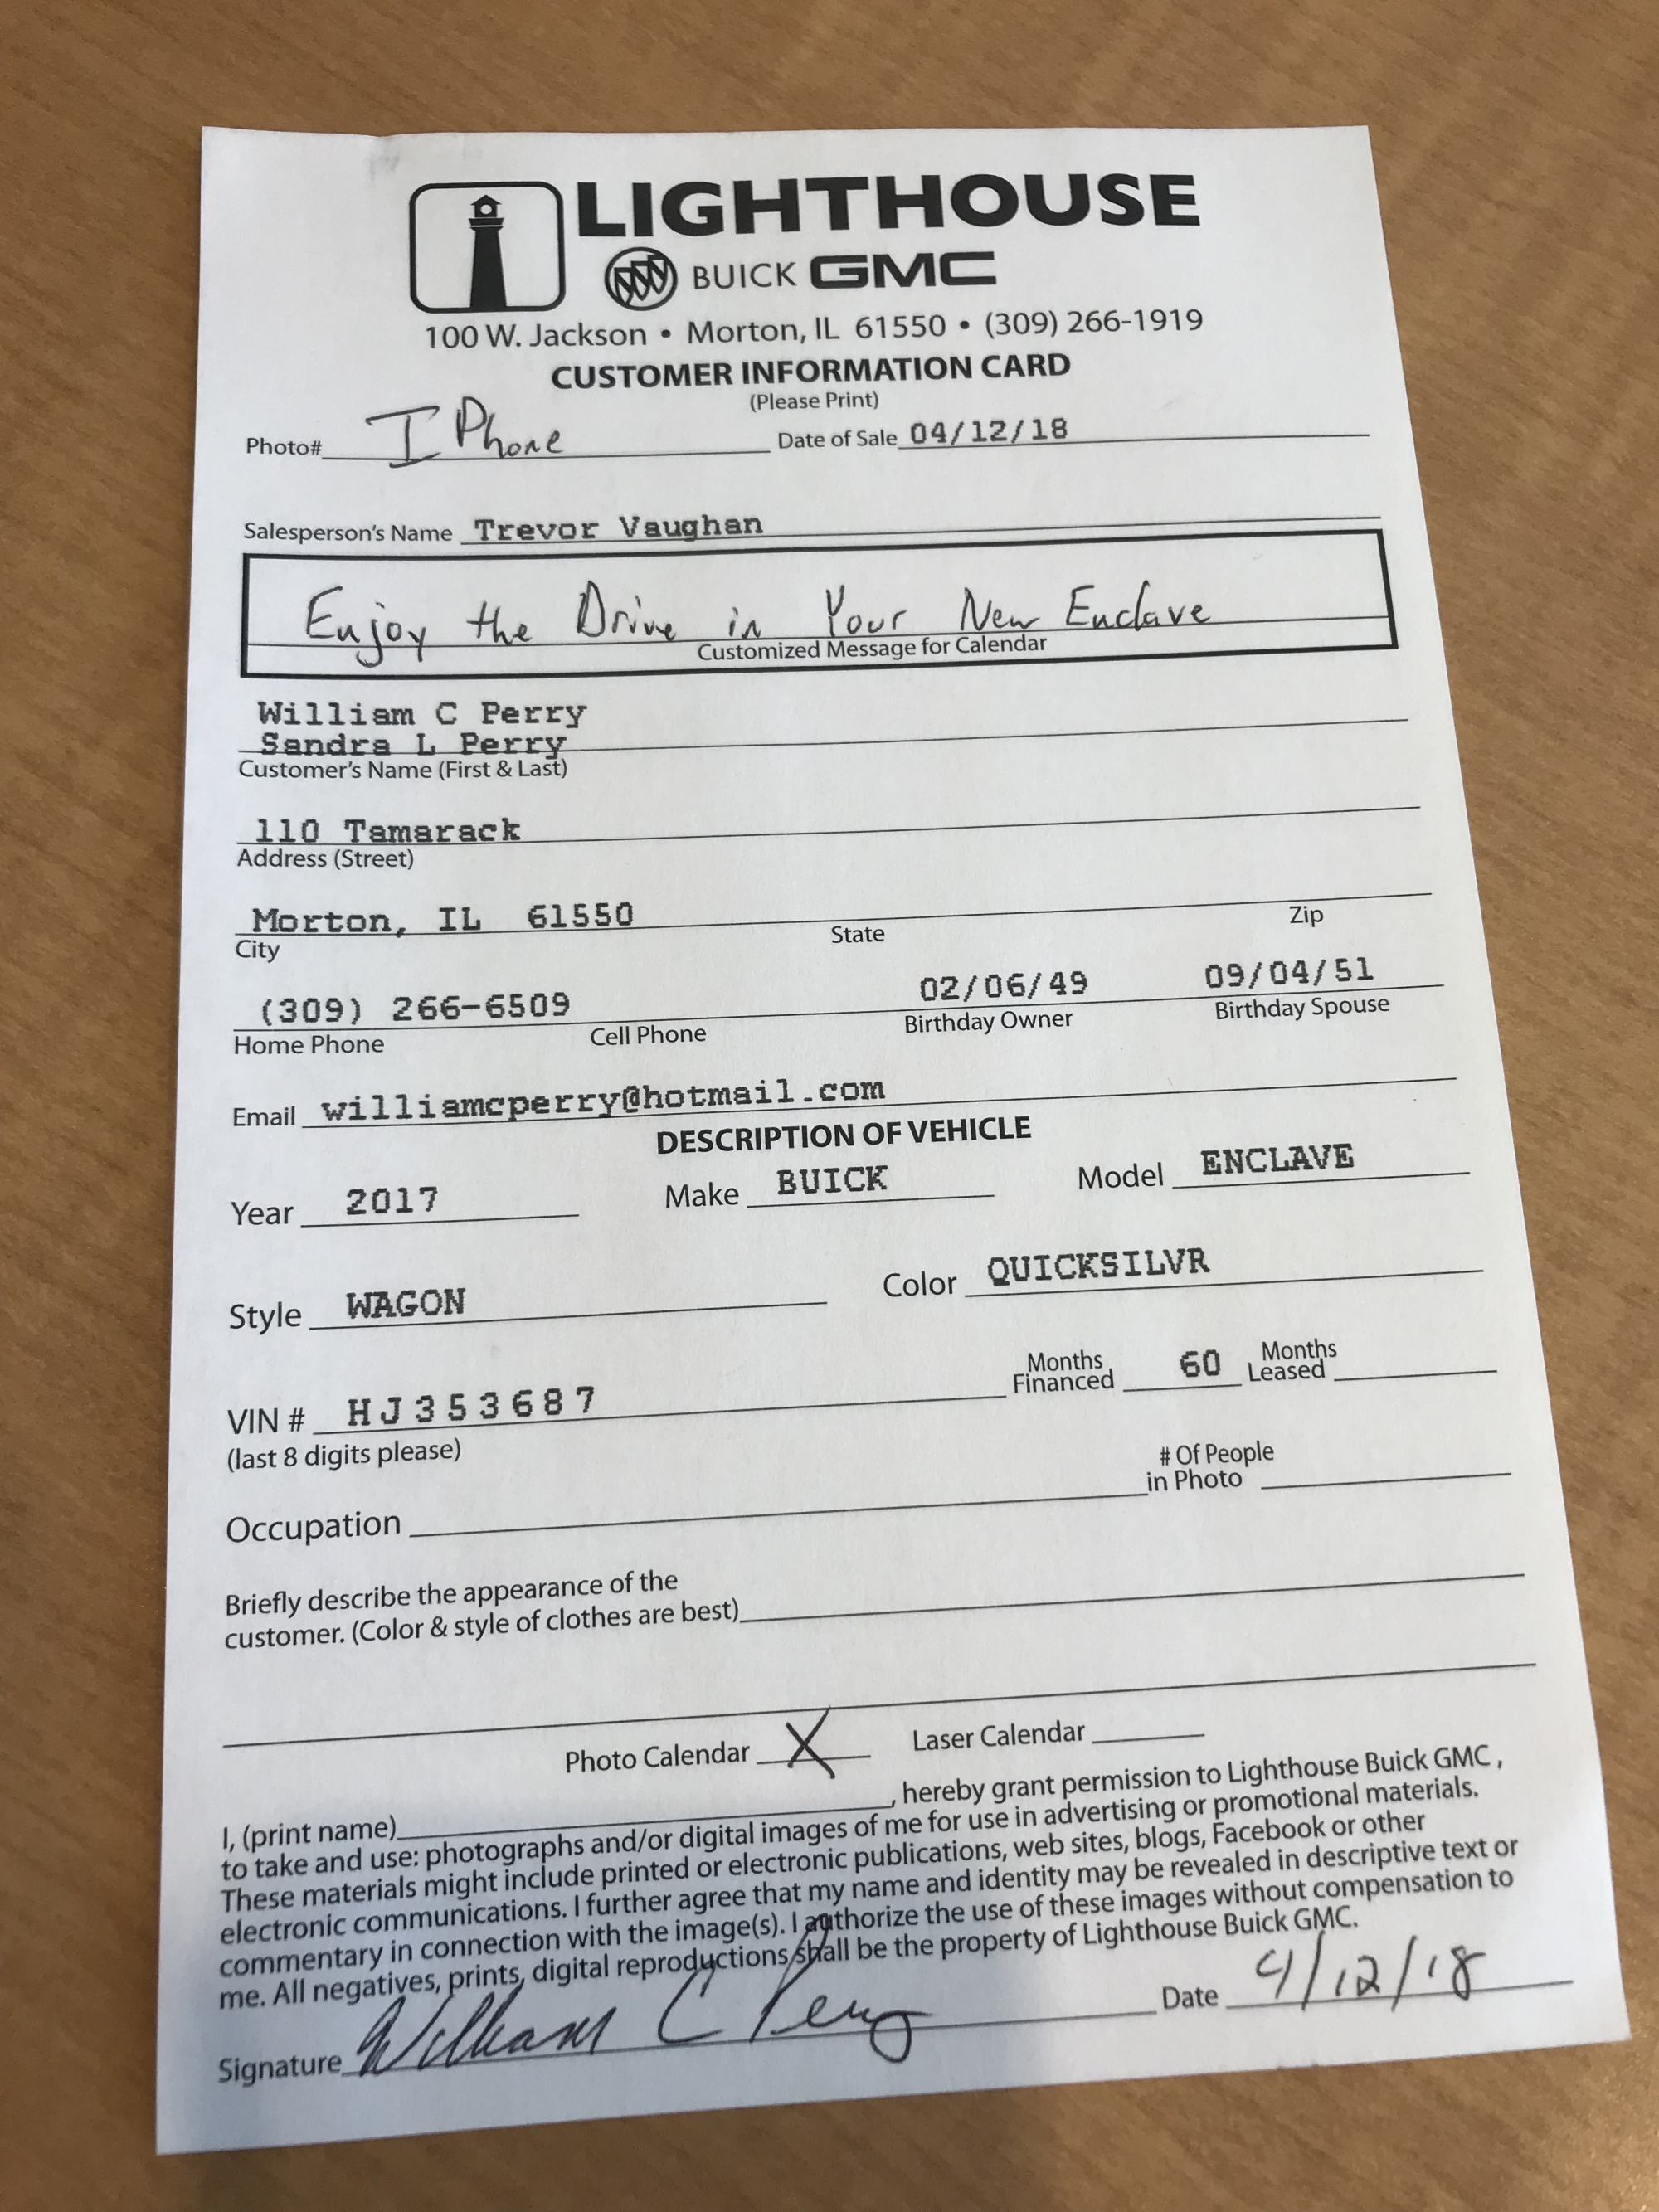 LIGHTHOUSE
BUICK GMC
100 W. Jackson • Morton, IL 61550 • (309) 266-1919
CUSTOMER INFORMATION CARD
(Please Print)
Photo# I Phone Date of Sale 04/12/18
Salesperson's Name Trevor Vaughan
Enjoy the Drive in Your New Enclave
Customized Message for Calendar
William C Perry
Sandra L Perry
Customer's Name (First & Last)
110 Tamarack
Address (Street)
Morton, IL 61550
City State Zip
(309) 266-6509 02/06/49 09/04/51
Home Phone Cell Phone Birthday Owner Birthday Spouse
Email williamcperry@hotmail.com
DESCRIPTION OF VEHICLE
Year 2017 Make BUICK Model ENCLAVE
Style WAGON Color QUICKSILVR
VIN # HJ353687 Months Financed 60 Months Leased
(last 8 digits please)
Occupation # Of People in Photo
Briefly describe the appearance of the
customer. (Color & style of clothes are best)
Photo Calendar X Laser Calendar
I, (print name) , hereby grant permission to Lighthouse Buick GMC ,
to take and use: photographs and/or digital images of me for use in advertising or promotional materials.
These materials might include printed or electronic publications, web sites, blogs, Facebook or other
electronic communications. I further agree that my name and identity may be revealed in descriptive text or
commentary in connection with the image(s). I authorize the use of these images without compensation to
me. All negatives, prints, digital reproductions shall be the property of Lighthouse Buick GMC.
Signature William C Perry Date 4/12/18